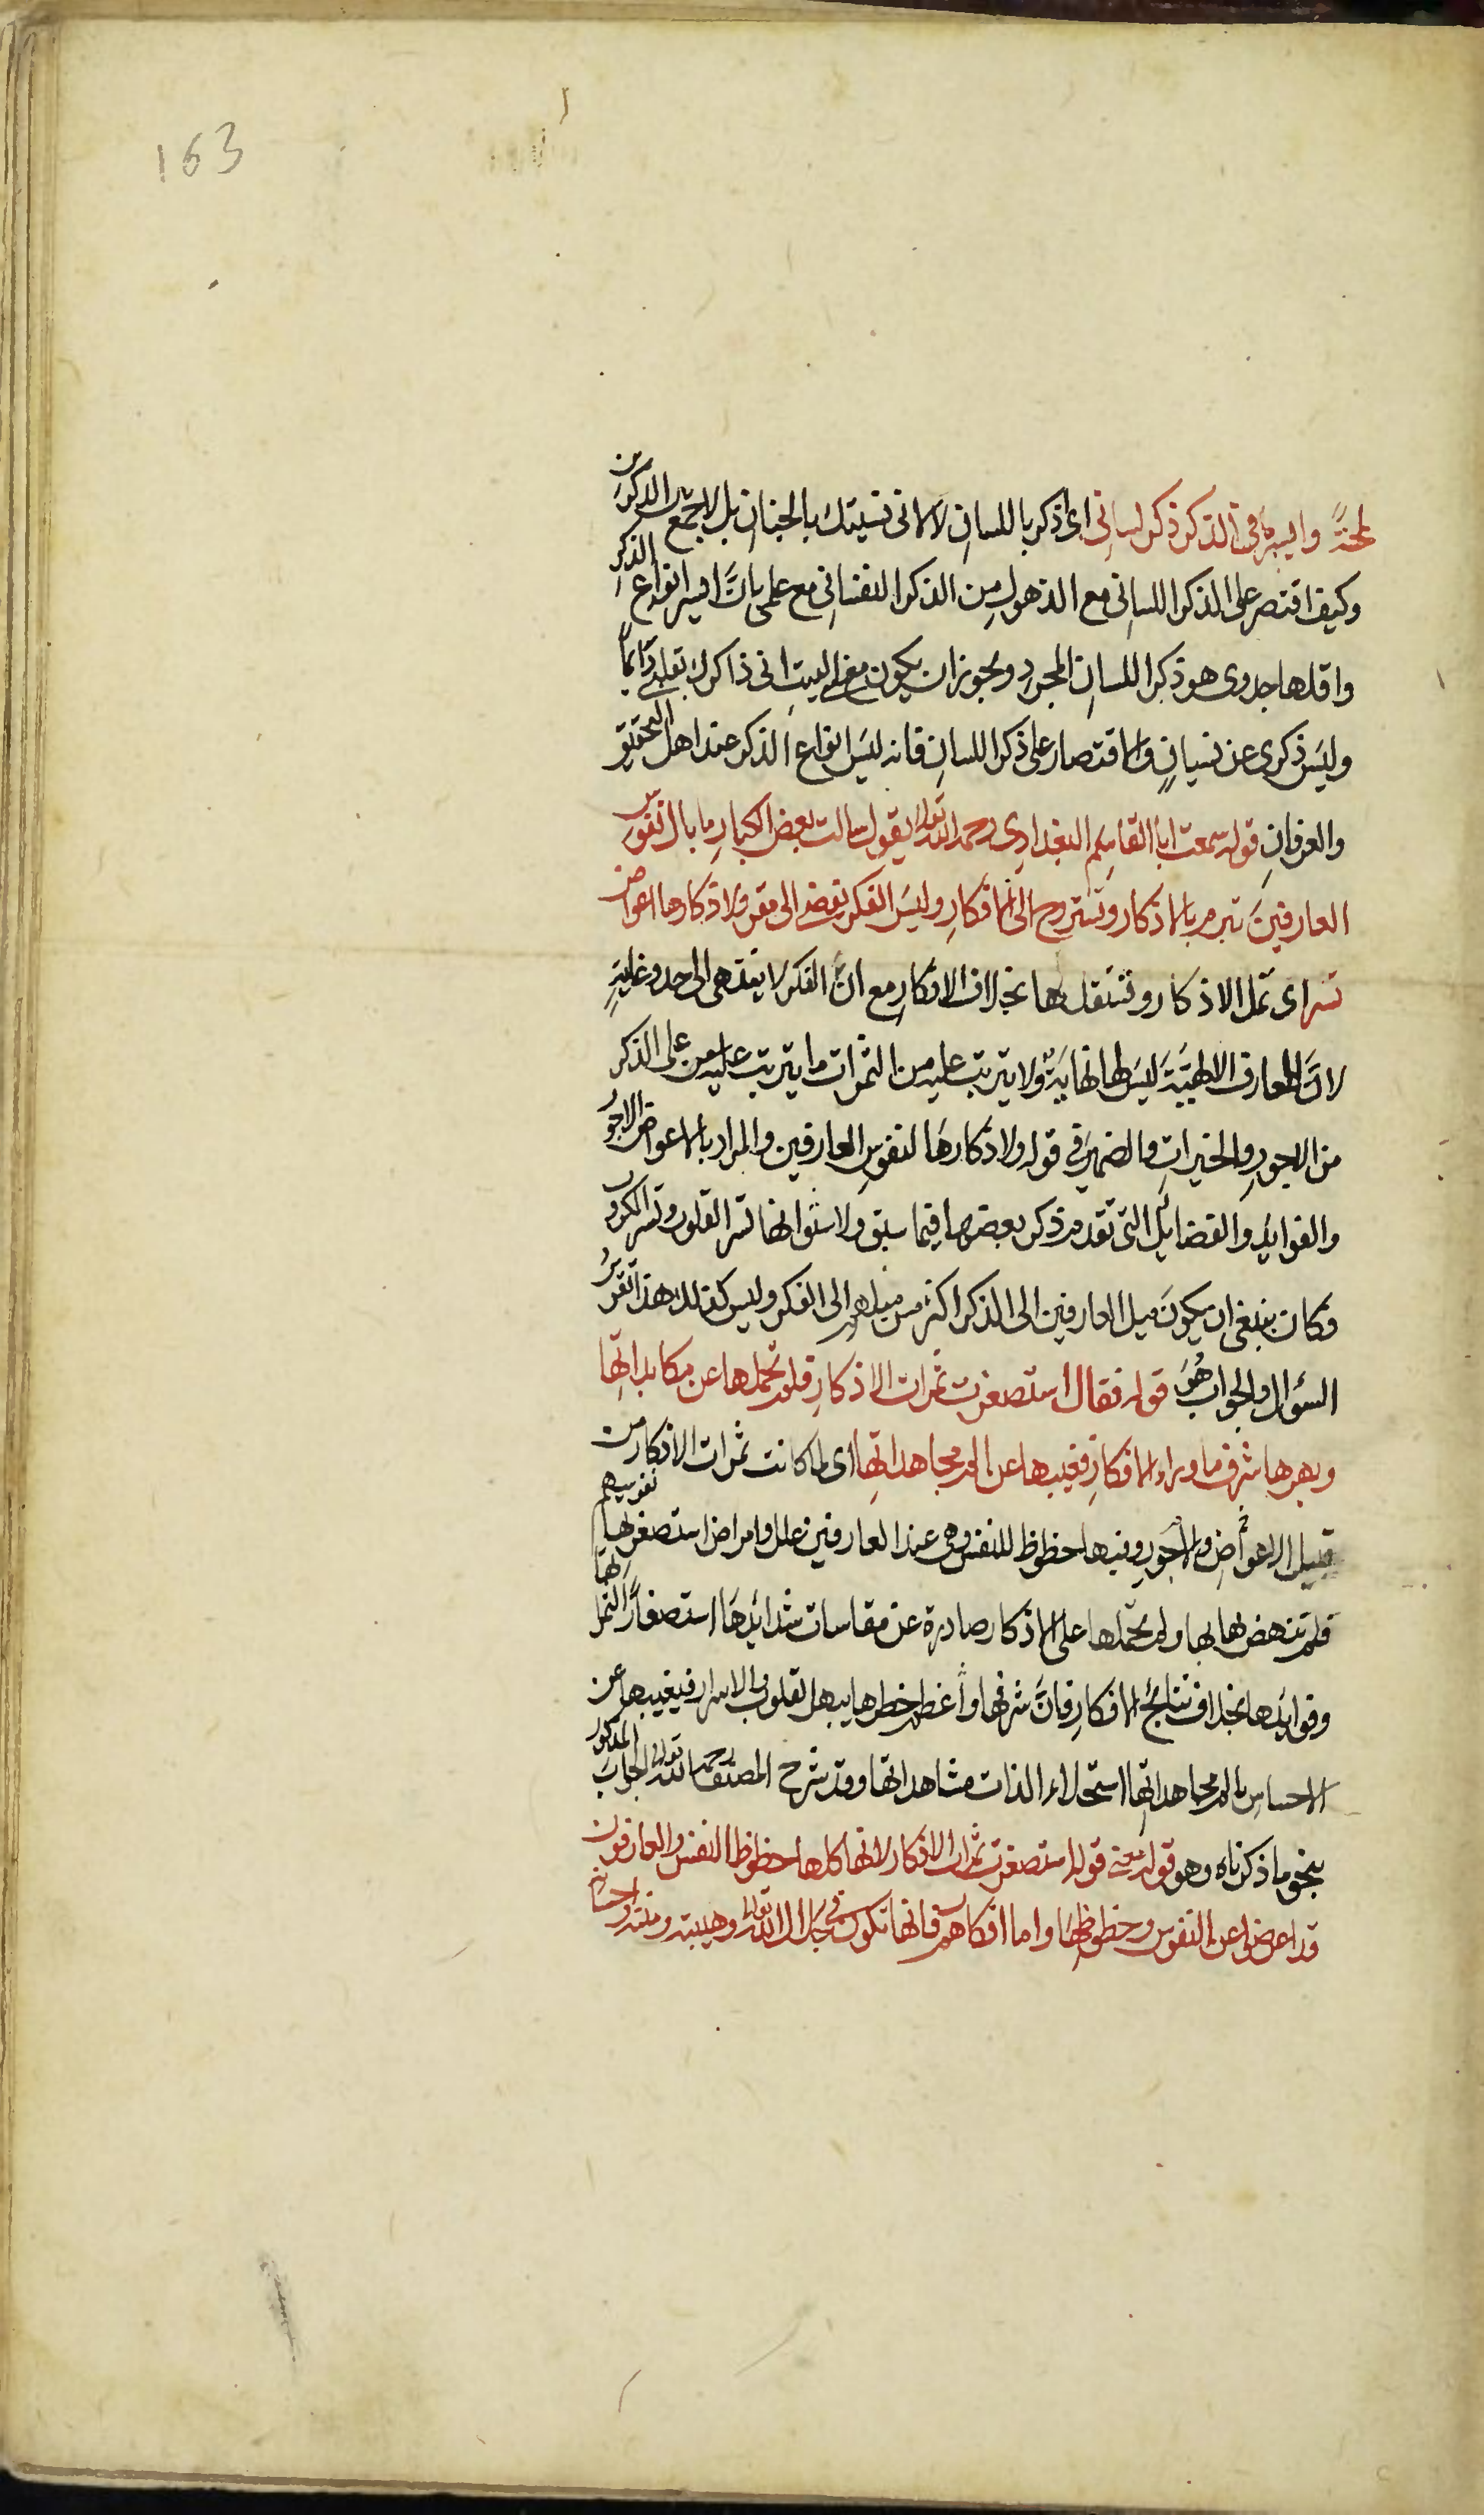 163
لمحةً وايسر ما في الذكر ذكر لساني اى اذكر باللسان لا لانى نسيتك بالجنان بل لاجمع بين الذكرين
وكيف اقتصر على الذكر اللسانى مع الذهول من الذكر النفسانى مع علمى بانَّ ايسر انواع الذكر
واقلها جدوى هو ذكر اللسان المجرد ويجوز ان يكون معنى البيت انى ذاكرك بقلبى دايماً
وليس ذكرى عن نسيانٍ والاقتصار على ذكر اللسان فانه ليس انواع الذكر عند اهل التحقيق
والعرفانِ قوله سمعت ابا القاسم البغدادى رحمه الله تعالى يقول سالت بعض الكبار ما بال نفوس
العارفين تبرم بالاذكار وتستروح الى الافكار وليس الفكر يفضى الى مقر ولاذكارها اعواض
تسر اى تمل الاذكار وتثقل لها بخلاف الافكار مع انَّ الفكر لا ينتهى الى حد وغاية
لانَّ المعارف الالهيَّة ليس لها نهايةٌ ولا يترتب عليه من الثمرات ما يترتب على الذكر
من الاجور والخيرات والضمير فى قوله ولاذكارها لنفوس العارفين والمراد بالاعواض الاجور
والفوايد والفضايل التى تقدم ذكر بعضها فيما سبق ولا شك انها تسر القلوب وتسر الكروب
فكان ينبغى ان يكون ميل العارفين الى الذكر اكثر من ميلهم الى الفكر وليس كذلك هذا تقرير
السؤال والجواب هُوَ قوله فقال استصغرت ثمرات الاذكار فلم تحملها عن مكابداتها
وبهرها شرف ما وراء الافكار فغيبها عن الم مجاهداتها اى لما كانت ثمرات الاذكار من
قبيل الاعواض والاجور وفيها حظوظ للنفس وهى عند العارفين علل وامراض استصغرتها نفوسهم
فلم تنهض لها بها ولم تحملها على الاذكار صادرة عن مقاسات شدائدها استصغاراً لثمراتها
وفوايدها بخلاف نتائج الافكار فانَّ شرفها واعظم خطرها يبهر القلوب والاسرار فيغيبها عن
الاحساس بالم مجاهداتها استحلاء لذات مشاهداتها وقد شرح المصنف رحمه الله تعالى الجواب المذكور
بنحو ما ذكرناه وهو قوله معنى قوله استصغرت ثمرات الاذكار لانها كلها حظوظ النفس والعارفون
قد اعرضوا عن النفوس وحظوظها واما افكارهم فانها تكون فى جلال الله تعالى وهيبته ومنته واحسانه